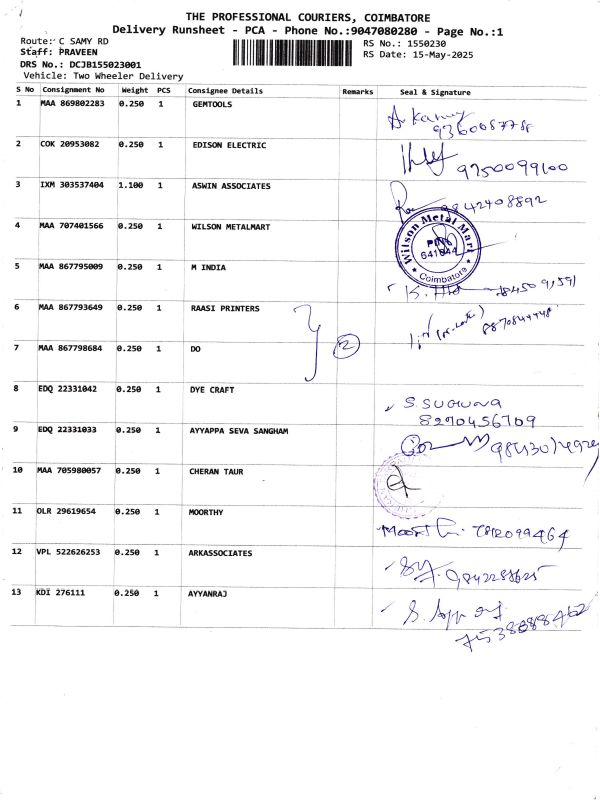 THE PROFESSIONAL COURIERS, COIMBATORE
Delivery Runsheet - PCA - Phone No.:9047080280 - Page No.:1
Route: C SAMY RD
Staff: PRAVEEN
DRS No.: DCJB155023001
Vehicle: Two Wheeler Delivery
RS No.: 1550230
RS Date: 15-May-2025
S No Consignment No Weight PCS Consignee Details Remarks Seal & Signature
1 MAA 869802283 0.250 1 GEMTOOLS
2 COK 20953082 0.250 1 EDISON ELECTRIC
9750099100
3 IXM 303537404 1.100 1 ASWIN ASSOCIATES
9842408892
4 MAA 707401566 0.250 1 WILSON METALMART
Wilson Metal Mart
641044
Coimbatore
5 MAA 867795009 0.250 1 M INDIA
6 MAA 867793649 0.250 1 RAASI PRINTERS
2
7 MAA 867798684 0.250 1 DO
8 EDQ 22331042 0.250 1 DYE CRAFT
S. SUGUNA
8270456709
9 EDQ 22331033 0.250 1 AYYAPPA SEVA SANGHAM
10 MAA 705980057 0.250 1 CHERAN TAUR
11 OLR 29619654 0.250 1 MOORTHY
12 VPL 522626253 0.250 1 ARKASSOCIATES
13 KDI 276111 0.250 1 AYYANRAJ